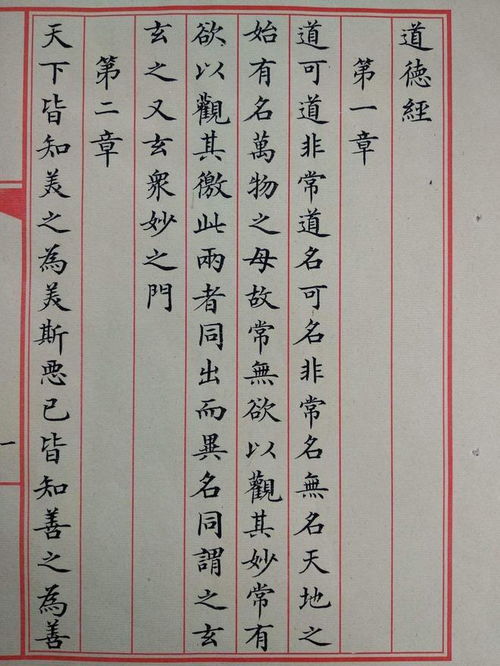 道德經
第一章
道可道非常道名可名非常名無名天地之
始有名萬物之母故常無欲以觀其妙常有
欲以觀其徼此兩者同出而異名同謂之玄
玄之又玄眾妙之門
第二章
天下皆知美之為美斯惡已皆知善之為善
一